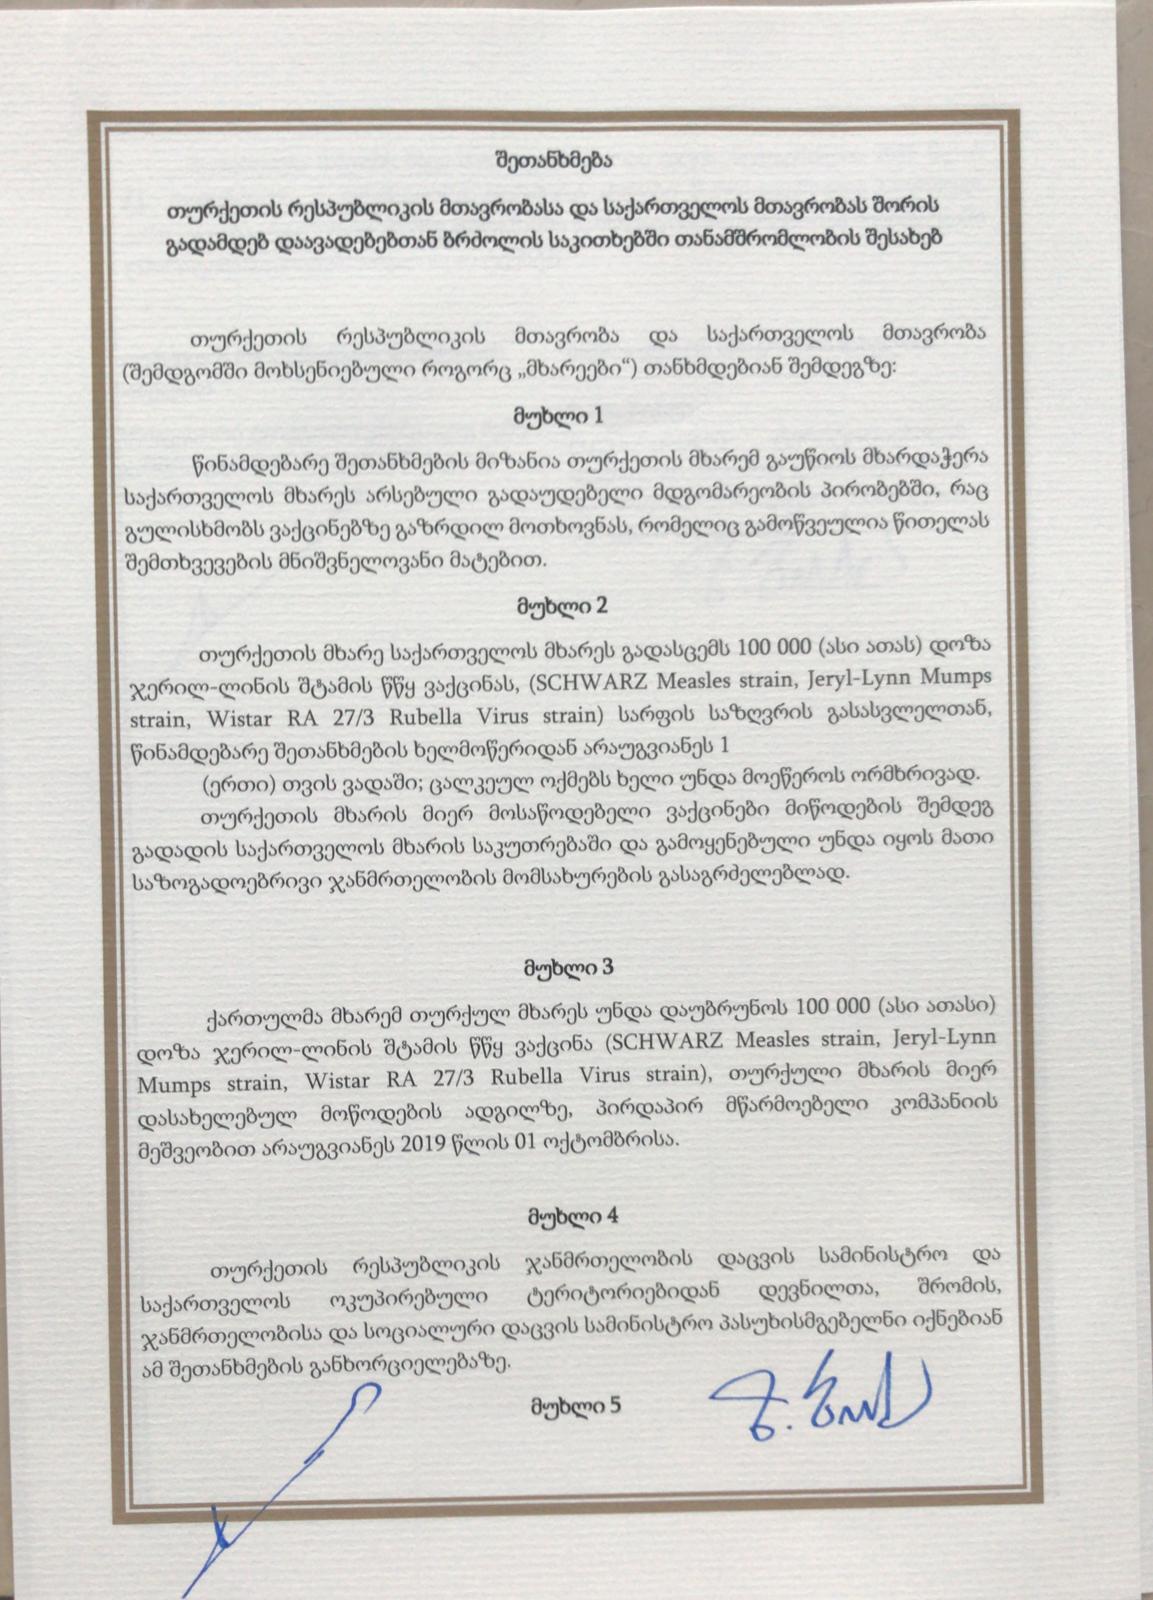 შეთანხმება
თურქეთის რესპუბლიკის მთავრობასა და საქართველოს მთავრობას შორის
გადამდებ დაავადებებთან ბრძოლის საკითხებში თანამშრომლობის შესახებ
თურქეთის რესპუბლიკის მთავრობა და საქართველოს მთავრობა
(შემდგომში მოხსენიებული როგორც „მხარეები“) თანხმდებიან შემდეგზე:
მუხლი 1
წინამდებარე შეთანხმების მიზანია თურქეთის მხარემ გაუწიოს მხარდაჭერა
საქართველოს მხარეს არსებული გადაუდებელი მდგომარეობის პირობებში, რაც
გულისხმობს ვაქცინებზე გაზრდილ მოთხოვნას, რომელიც გამოწვეულია წითელას
შემთხვევების მნიშვნელოვანი მატებით.
მუხლი 2
თურქეთის მხარე საქართველოს მხარეს გადასცემს 100 000 (ასი ათას) დოზა
ჯერილ-ლინის შტამის წწყ ვაქცინას, (SCHWARZ Measles strain, Jeryl-Lynn Mumps
strain, Wistar RA 27/3 Rubella Virus strain) სარფის საზღვრის გასასვლელთან,
წინამდებარე შეთანხმების ხელმოწერიდან არაუგვიანეს 1
(ერთი) თვის ვადაში; ცალკეულ ოქმებს ხელი უნდა მოეწეროს ორმხრივად.
თურქეთის მხარის მიერ მოსაწოდებელი ვაქცინები მიწოდების შემდეგ
გადადის საქართველოს მხარის საკუთრებაში და გამოყენებული უნდა იყოს მათი
საზოგადოებრივი ჯანმრთელობის მომსახურების გასაგრძელებლად.
მუხლი 3
ქართულმა მხარემ თურქულ მხარეს უნდა დაუბრუნოს 100 000 (ასი ათასი)
დოზა ჯერილ-ლინის შტამის წწყ ვაქცინა (SCHWARZ Measles strain, Jeryl-Lynn
Mumps strain, Wistar RA 27/3 Rubella Virus strain), თურქული მხარის მიერ
დასახელებულ მოწოდების ადგილზე, პირდაპირ მწარმოებელი კომპანიის
მეშვეობით არაუგვიანეს 2019 წლის 01 ოქტომბრისა.
მუხლი 4
თურქეთის რესპუბლიკის ჯანმრთელობის დაცვის სამინისტრო და
საქართველოს ოკუპირებული ტერიტორიებიდან დევნილთა, შრომის,
ჯანმრთელობისა და სოციალური დაცვის სამინისტრო პასუხისმგებელნი იქნებიან
ამ შეთანხმების განხორციელებაზე.
მუხლი 5